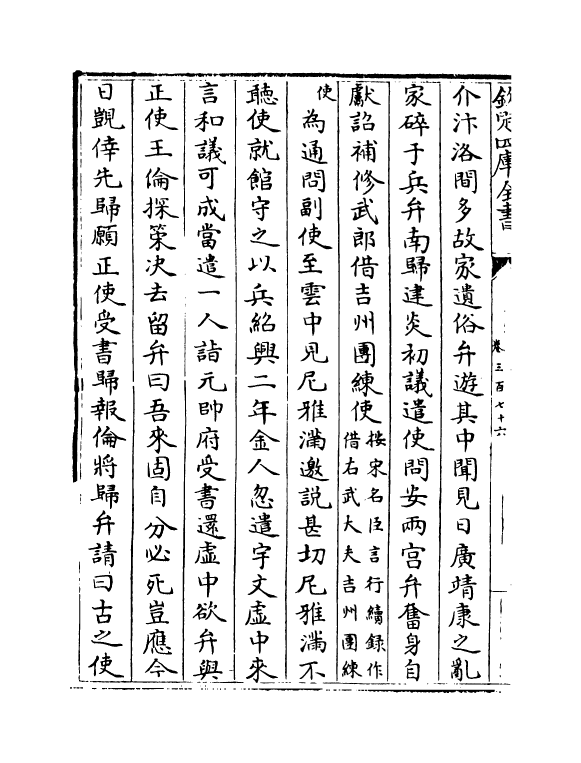 欽定四庫全書
卷三百七十六
介汴洛間多故家遺俗弁遊其中聞見日廣靖康之亂
家碎于兵弁南歸建炎初議遣使問安兩宫弁奮身自
獻詔補修武郎借吉州團練使按宋名臣言行續録作借右武大夫吉州團練
使為通問副使至雲中見尼雅滿邀説甚切尼雅滿不
聽使就館守之以兵紹興二年金人忽遣宇文虚中來
言和議可成當遣一人詣元帥府受書還虚中欲弁與
正使王倫探策决去留弁曰吾來固自分必死豈應今
日覬倖先歸願正使受書歸報倫將歸弁請曰古之使